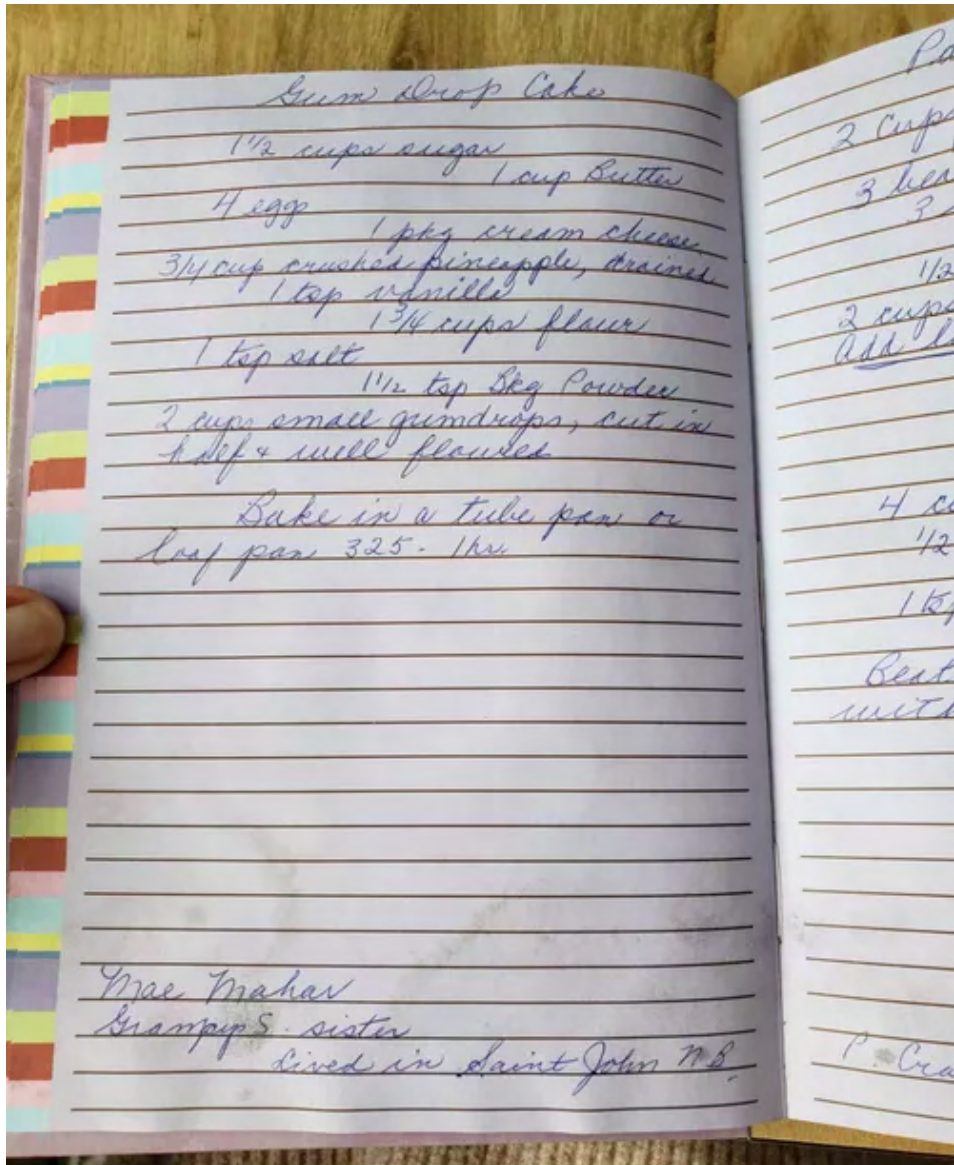 Gum Drop Cake
1 1/2 cups sugar
1 cup Butter
4 eggs
1 pkg cream cheese
3/4 cup crushed pineapple, drained
1 tsp vanilla
1 3/4 cups flour
1 tsp salt
1 1/2 tsp Bkg Powder
2 cups small gumdrops, cut in
half & well floured
Bake in a tube pan or
loaf pan 325. 1 hr.
Mae Mahar
Grampy S. sister
Lived in Saint John N.B.
2 cups
3
3
1/2
2 cups
add
4
1/2
1 tsp
Beat
with
P.